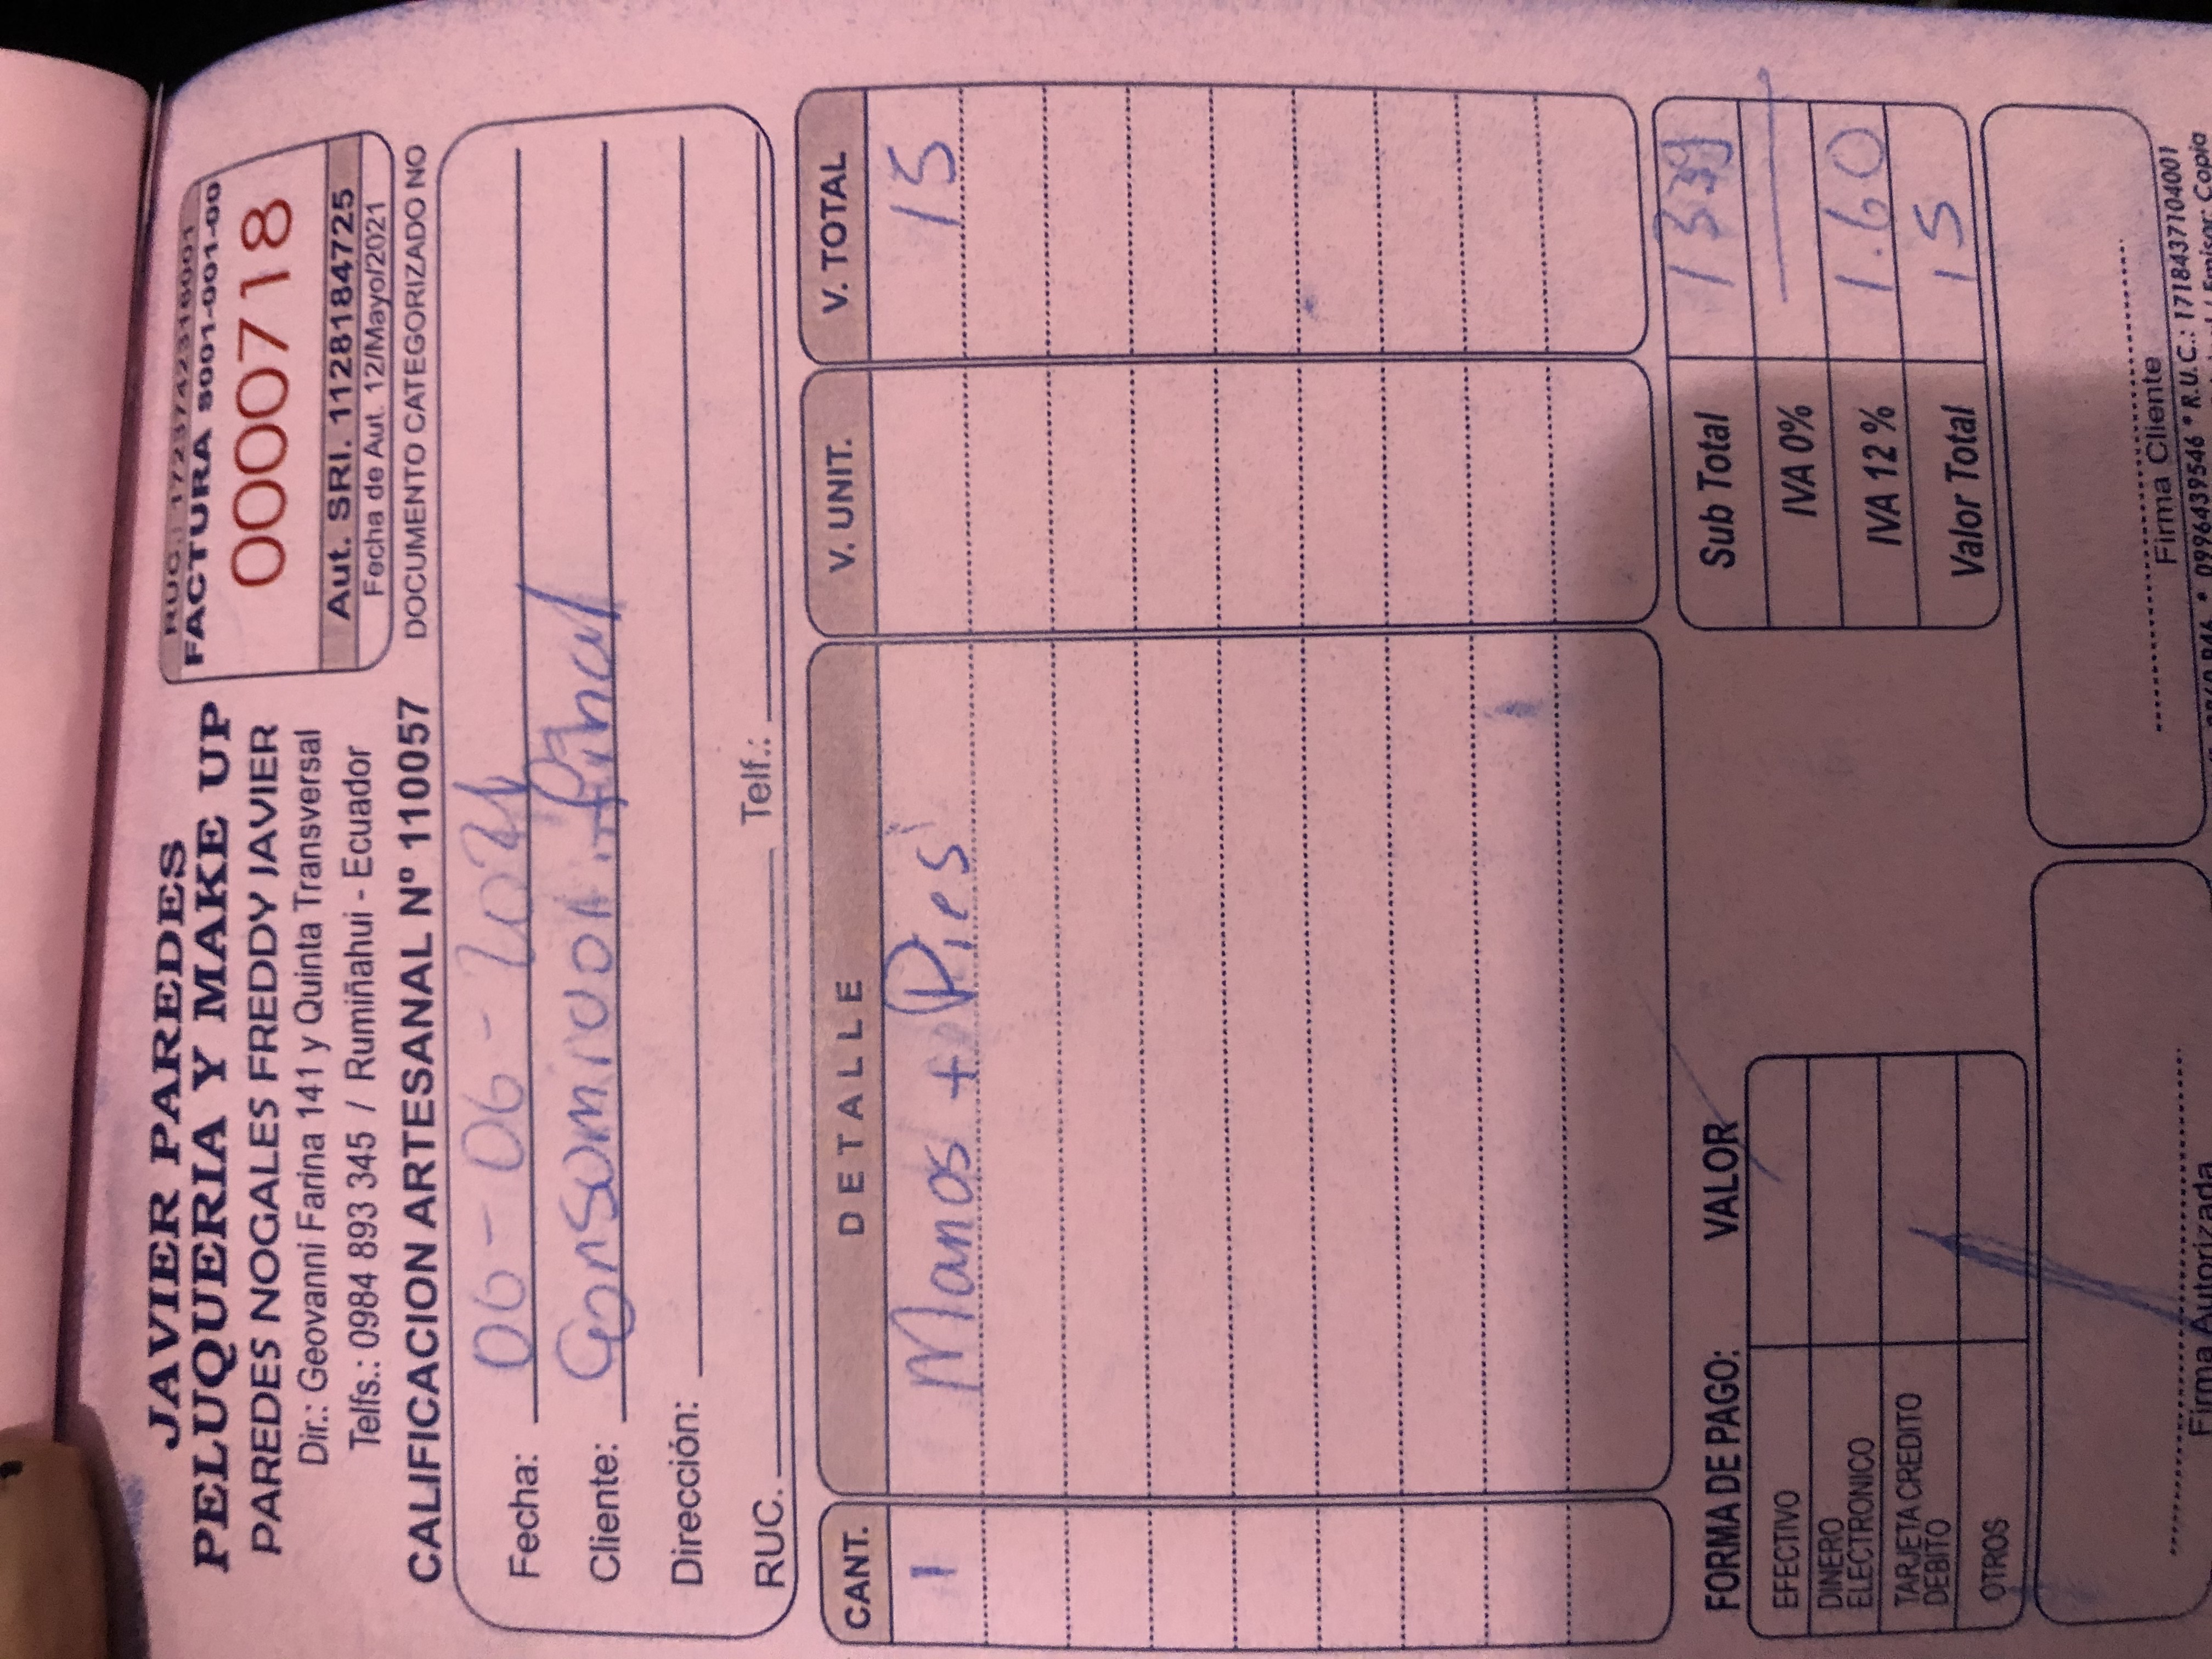 JAVIER PAREDES
PELUQUERIA Y MAKE UP
PAREDES NOGALES FREDDY JAVIER
Dir.: Geovanni Farina 141 y Quinta Transversal
Telfs.: 0984 893 345 / Rumiñahui - Ecuador
CALIFICACION ARTESANAL Nº 110057
RUC.: 1723742316001
FACTURA S001-001-00
0000718
Aut. SRI. 1128184725
Fecha de Aut. 12/Mayo/2021
DOCUMENTO CATEGORIZADO NO
Fecha: 06-06-2021
Cliente: Consumidor final
Dirección:
RUC. Telf.:
CANT. DETALLE V. UNIT. V. TOTAL
1 Manos + Pies 15
FORMA DE PAGO: VALOR
EFECTIVO
DINERO ELECTRONICO
TARJETA CREDITO DEBITO
OTROS
Sub Total 1339
IVA 0%
IVA 12% 1.60
Valor Total 15
Firma Autorizada
Firma Cliente
* 0996439546 * R.U.C.: 1718437104001
/ Emisor: Copia